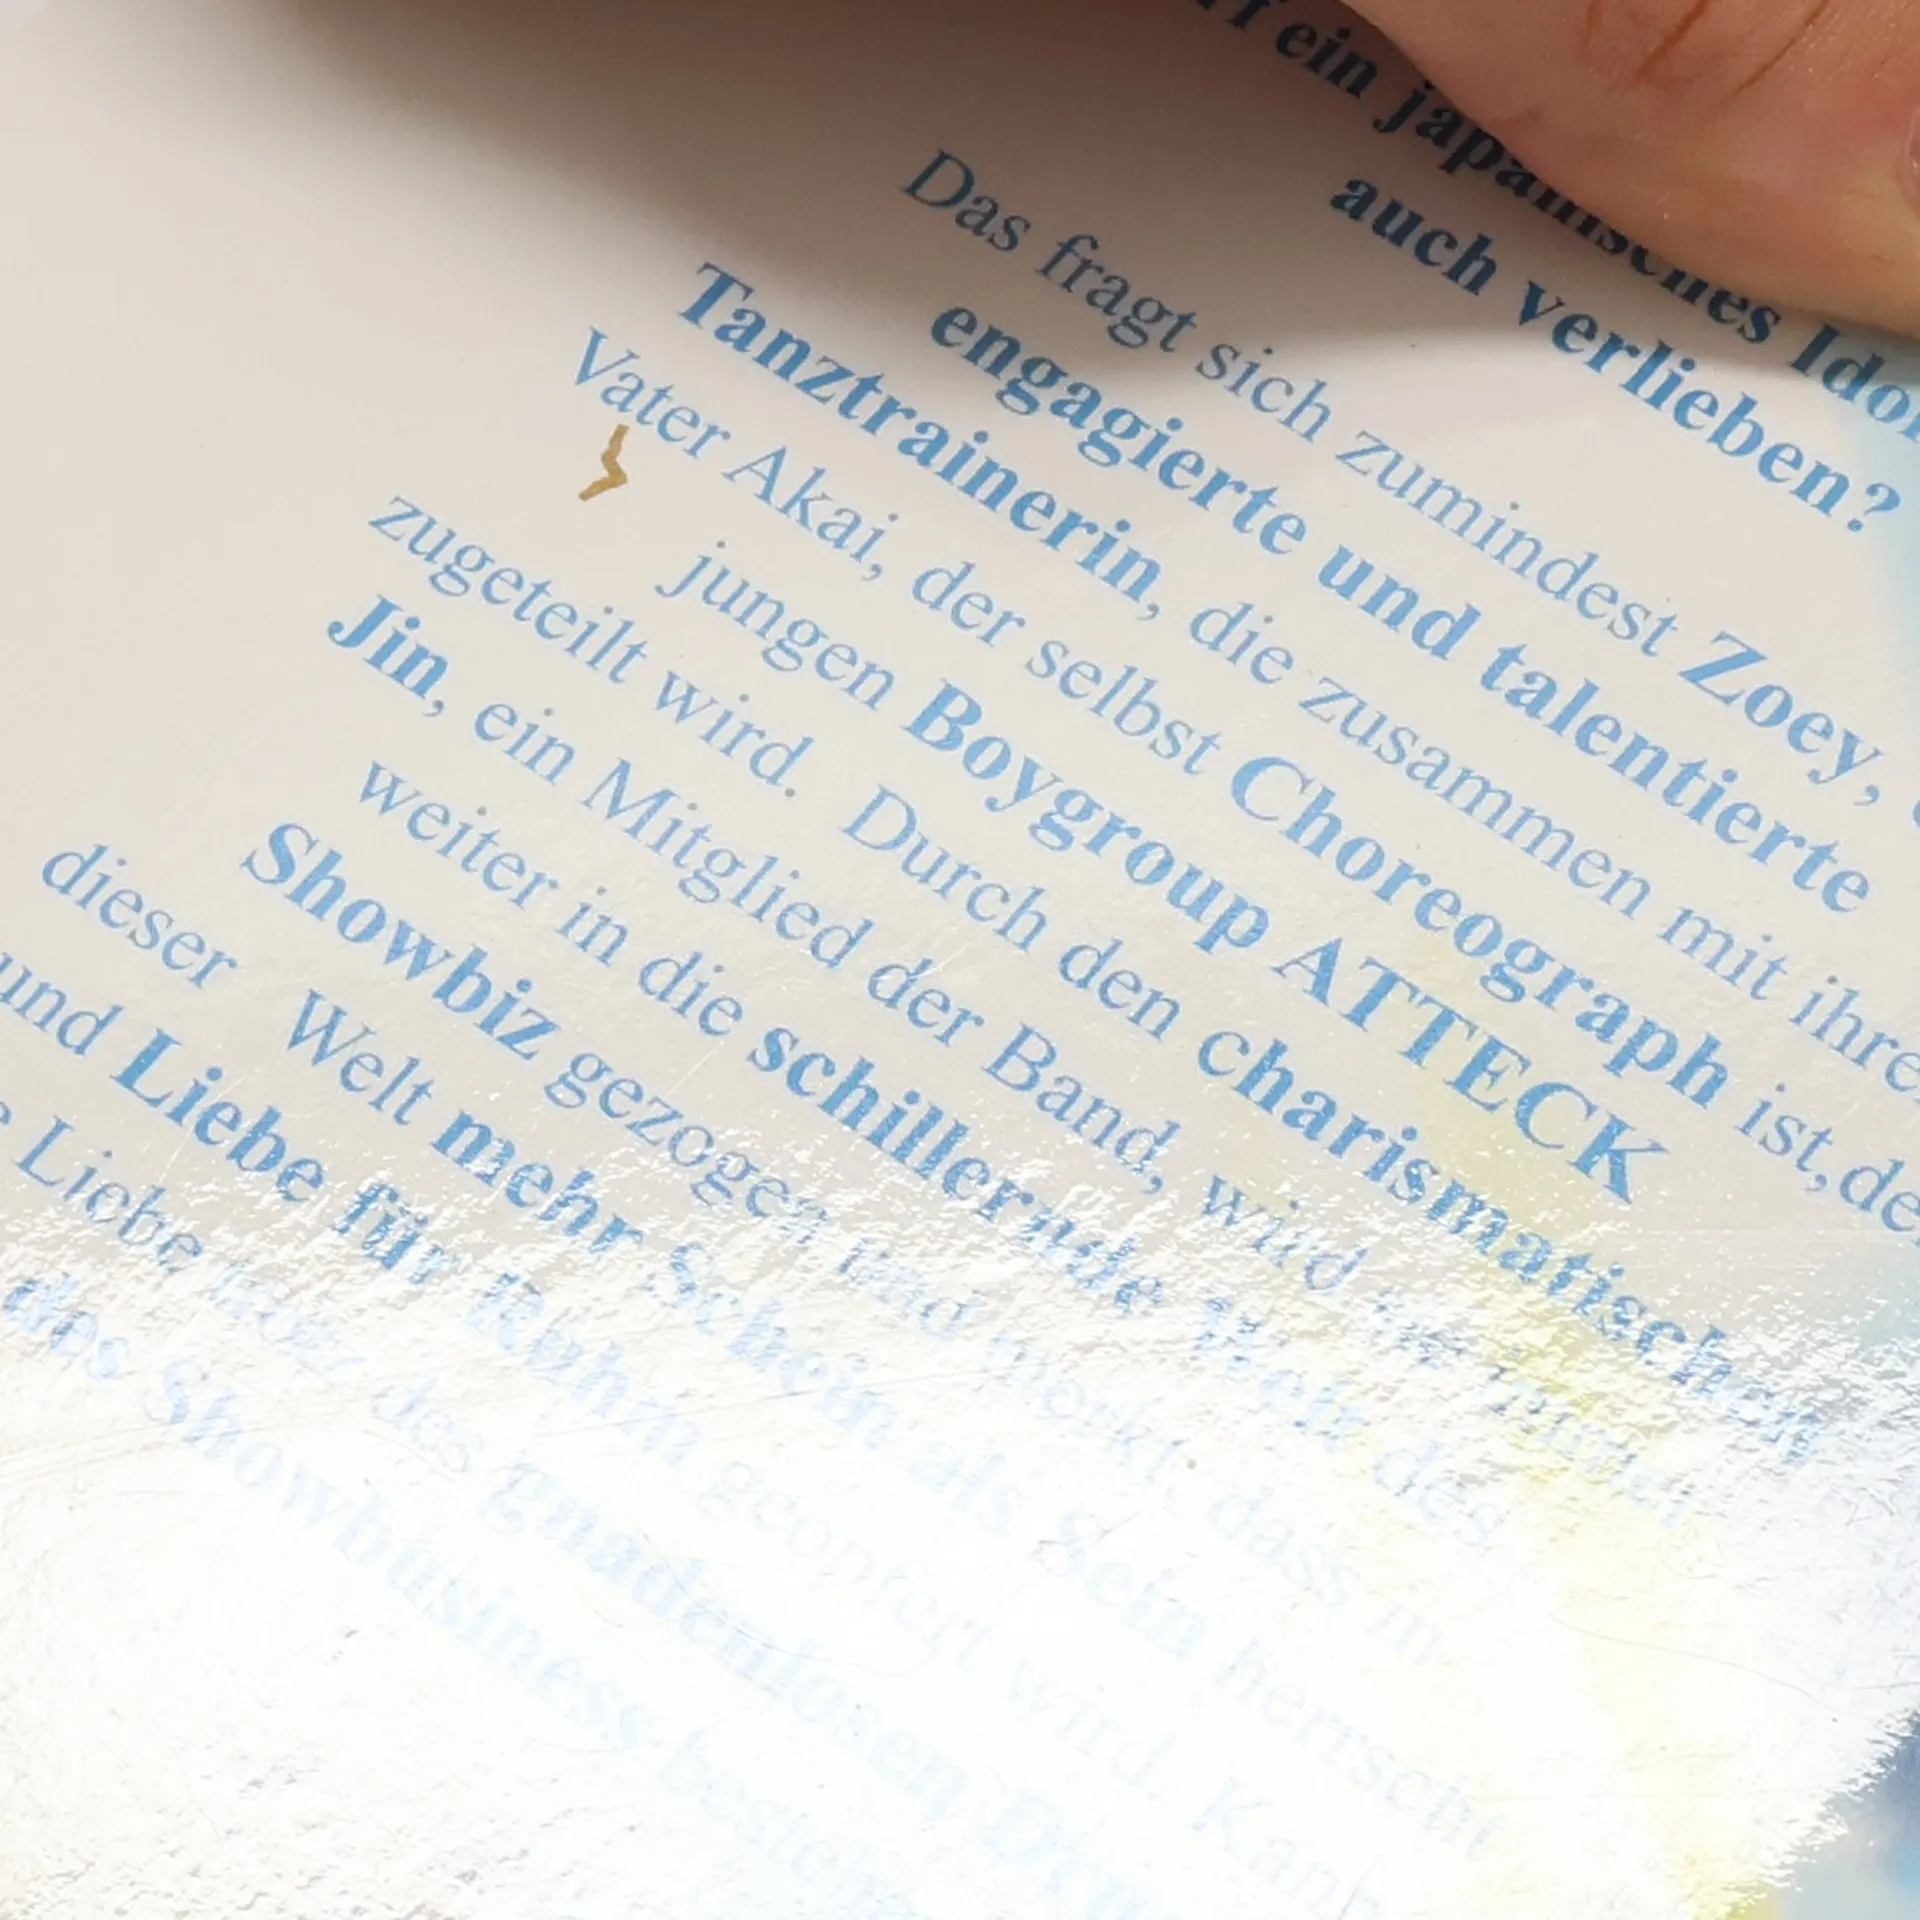 ein japanisches Idol
auch verlieben?
Das fragt sich zumindest Zoey,
engagierte und talentierte
Tanztrainerin, die zusammen mit ihre
Vater Akai, der selbst Choreograph ist, de
jungen Boygroup ATTECK
zugeteilt wird. Durch den charismatischen
Jin, ein Mitglied der Band, wird
weiter in die schillernde Welt des
Showbiz gezogen und merkt, dass in
dieser Welt mehr Schein als Sein herrscht
und Liebe für Ruhm geopfert wird. Kann
Liebe trotz des gnadenlosen
des Showbusiness